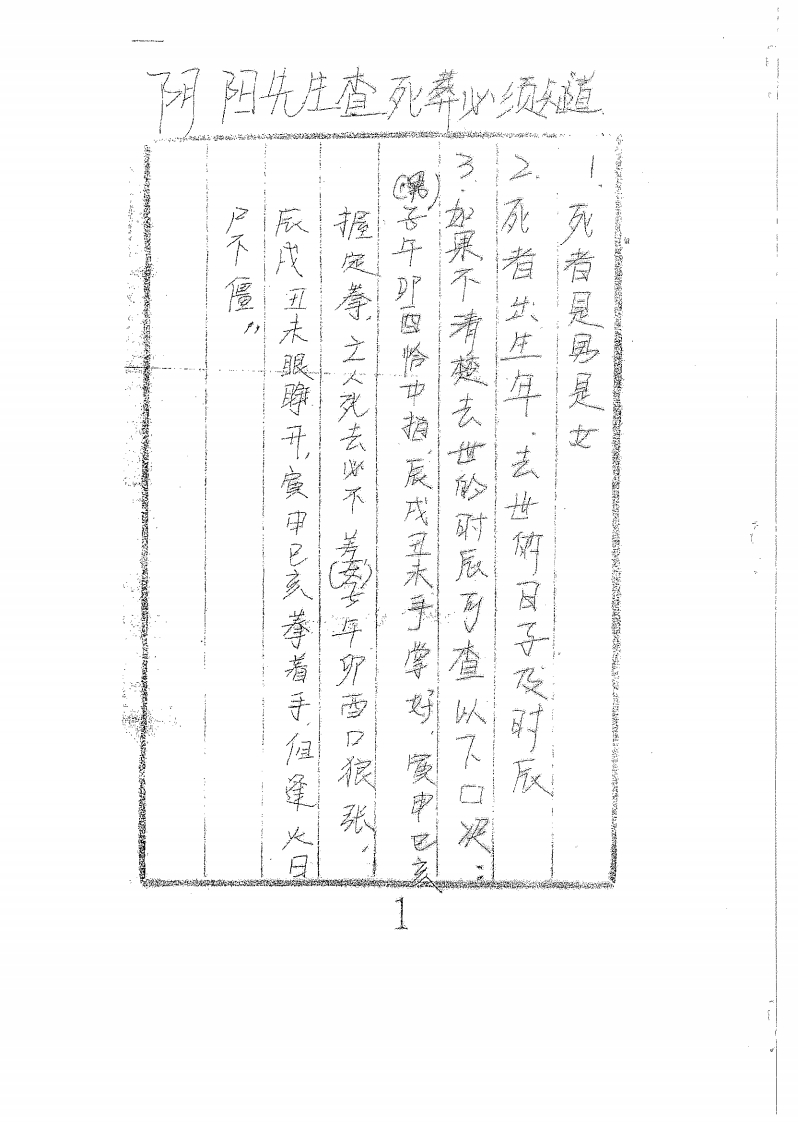 阴阳先生查死葬必须知道
1. 死者是男是女
2. 死者出生年.去世的日子及时辰
3.如果不清楚去世的时辰可查以下口决:
(男)子午卯酉恰中指,辰戌丑未手掌好,寅申巳亥
握定拳,之人死去必不差(女)子午卯酉口狼张,
辰戌丑未眼睁开,寅申巳亥拳着手,但逢火日
尸不僵,,
1